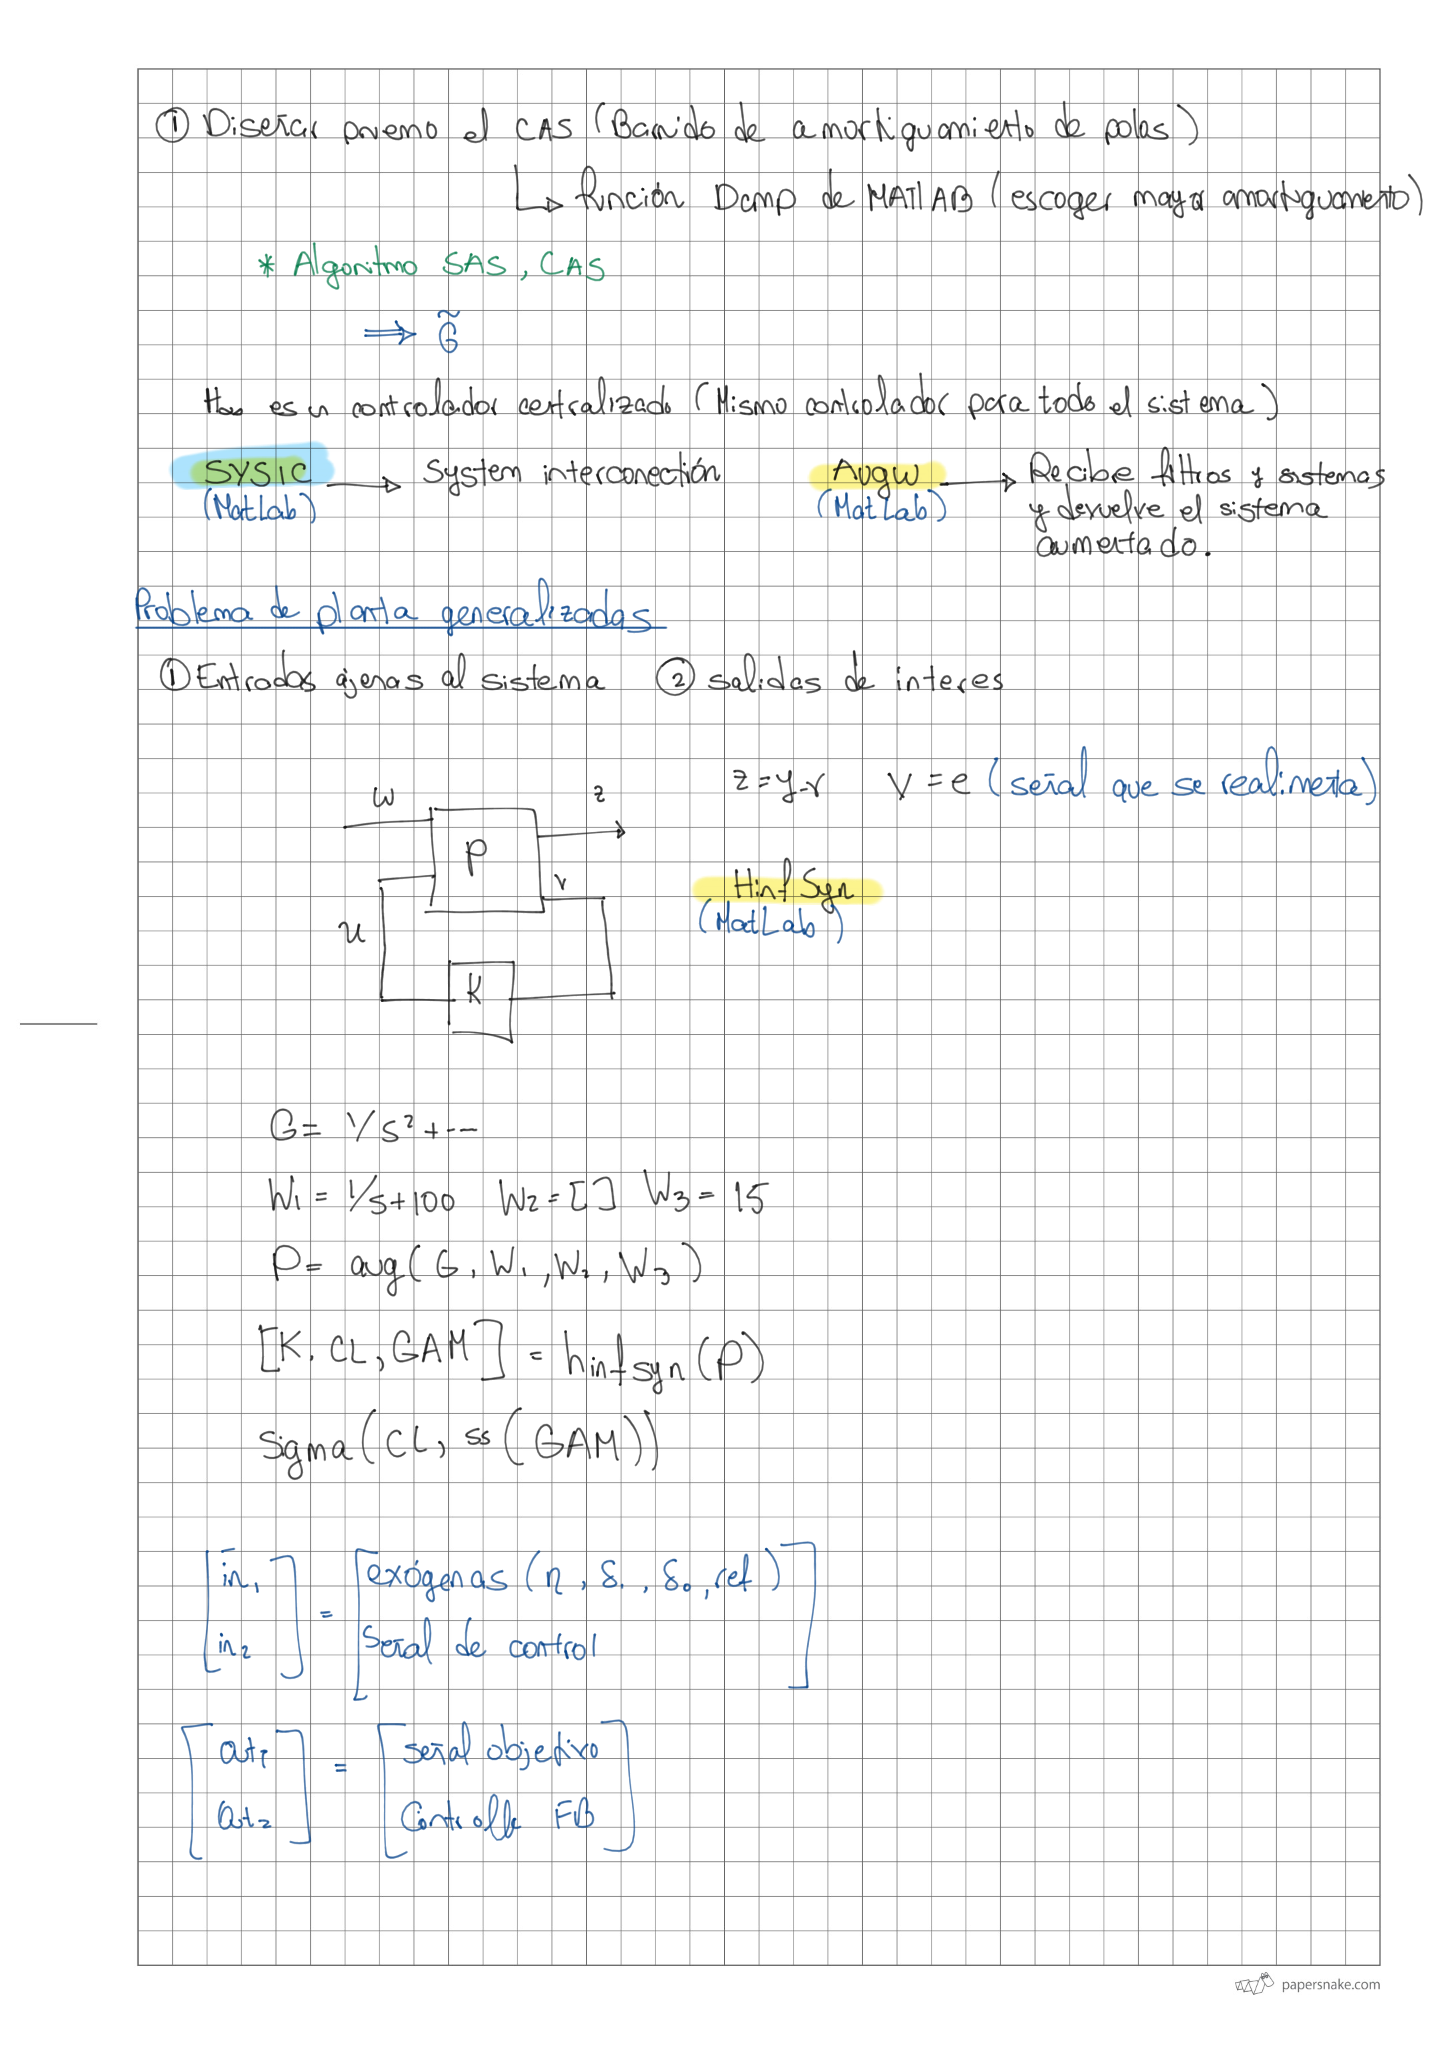 ① Diseñar primero el CAS (Barrido de amortiguamiento de polos)
↳ función Damp de MATLAB (escoger mayor amortiguamiento)
* Algoritmo SAS, CAS
⟹ G̃
H∞ es un controlador centralizado (Mismo controlador para todo el sistema)
SYSIC → System interconectión
(MatLab)
Augw → Recibe filtros y sistemas
(MatLab) y devuelve el sistema
aumentado.
Problema de planta generalizadas
① Entradas ajenas al sistema ② salidas de interes
z = y-r v = e (señal que se realimenta)
w z
P
v
u
K
Hinf Syn
(MatLab)
G = 1/s² + ---
W₁ = 1/s+100 W₂ = [] W₃ = 15
P = aug(G, W₁, W₂, W₃)
[K, CL, GAM] = hinfsyn(P)
Sigma(CL, ss(GAM))
[in₁ = [exógenas (η, δᵢ, δₒ, ref)
in₂] Señal de control]
[out₁ = [señal objetivo
out₂] FB]
papersnake.com